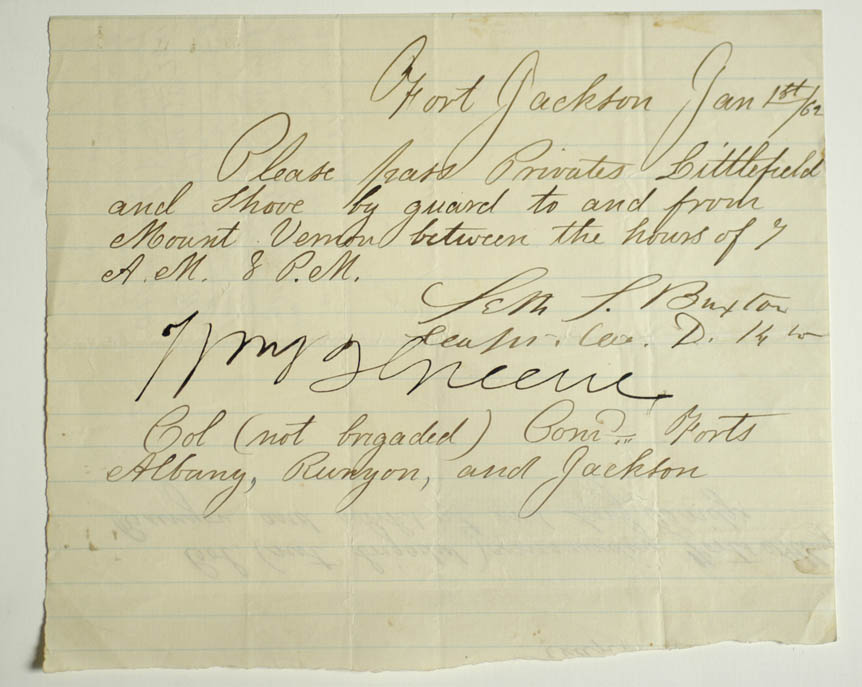 Fort Jackson Jan 1st/62
Please pass Privates Littlefield
and Shove by guard to and from
Mount Vernon between the hours of 7
A.M. 8 P.M.
Seth S. Buxton
Capt. Co. D. 14
Greene
Col (not brigaded) Comd Forts
Albany, Runyon, and Jackson